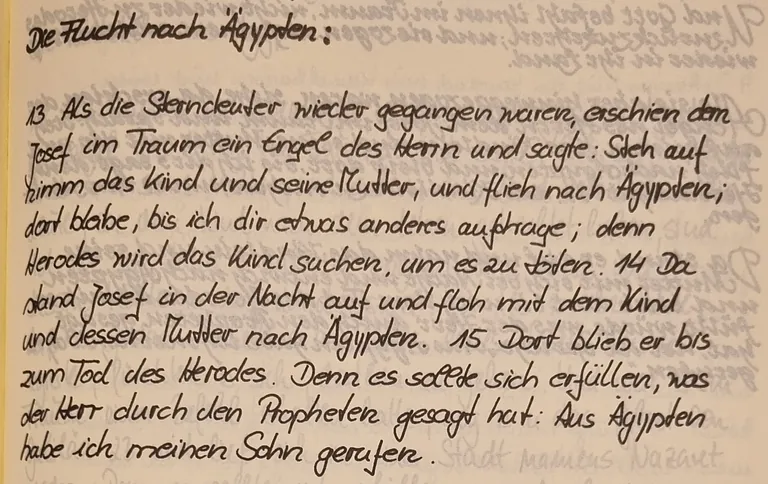 Die Flucht nach Ägypten:
13 Als die Sterndeuter wieder gegangen waren, erschien dem
Josef im Traum ein Engel des Herrn und sagte: Steh auf
nimm das Kind und seine Mutter, und flieh nach Ägypten;
dort bleibe, bis ich dir etwas anderes auftrage; denn
Herodes wird das Kind suchen, um es zu töten. 14 Da
stand Josef in der Nacht auf und floh mit dem Kind
und dessen Mutter nach Ägypten. 15 Dort blieb er bis
zum Tod des Herodes. Denn es sollte sich erfüllen, was
der Herr durch den Propheten gesagt hat: Aus Ägypten
habe ich meinen Sohn gerufen.
Stadt namens Nazaret